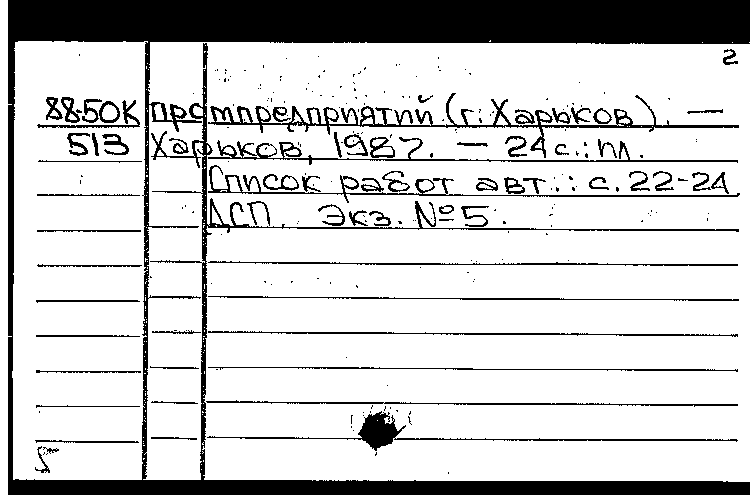 2
88-50К промпредприятий (г. Харьков). —
513 Харьков, 1987. — 24 с.: пл.
Список работ авт.: с. 22-24
ДСП. Экз. №5.
5